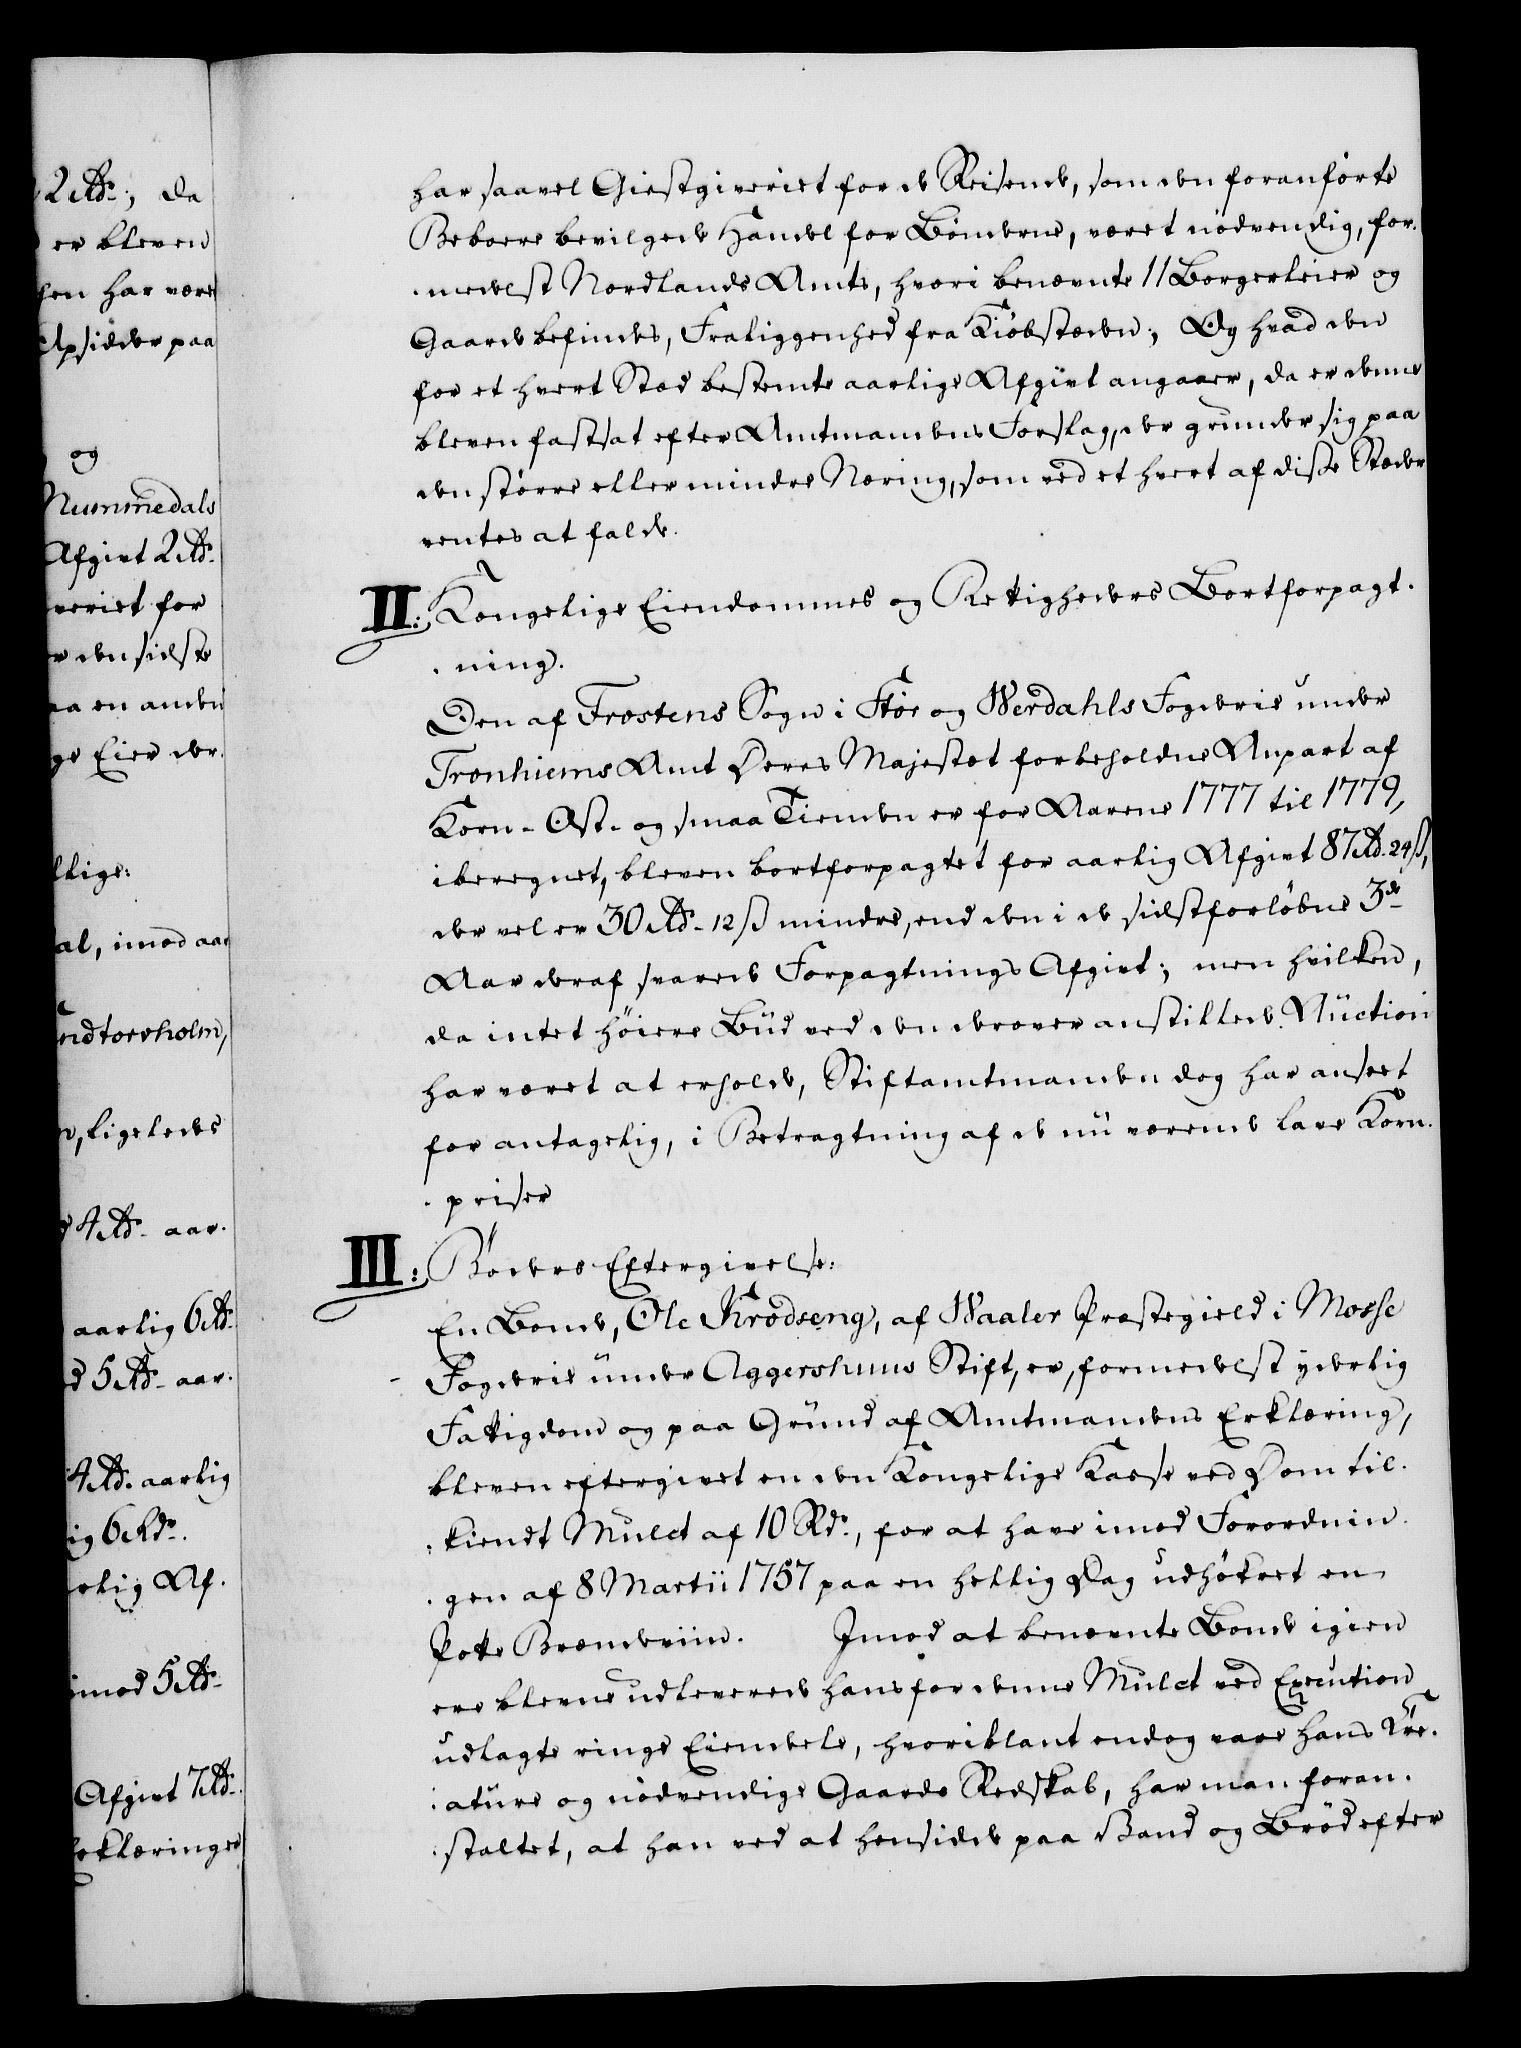 2 Rd; da
er bleven
hen har være
Opsidder paa
og
Nummedals
Afgivt 2 Rd
veriet for
den sidste
en anden
ge Eier der.
llige:
al, imod aar
ndtorsholm,
ligeledes
4 Rd aar.
aarlig 6 Rd
5 Rd aar.
4 Rd aarlig
ig 6 Rdr.
rlig Af.
imod 5 Rd
Afgivt 7 Rd
erklæringer
har saavel Giestgiveriet for de Reisende, som den foranførte
Beboere bevilgede Handel for Bønderne, været nødvendig, for-
-medelst Nordlands Amts, hvori benævnte 11 Borgerleier og
Gaarde befindes, Fraliggenhed fra Kiøbstæden; Og hvad den
for et hvert Stæd bestemte aarlige Afgivt angaaer, da er denne
bleven fastsat efter Amtmandens Forslag, der grunder sig paa
den større eller mindre Næring, som ved et hvert af disse Stæder
ventes at falde.
II: Kongelige Eiendommes og Rettigheders Bortforpagt-
-ning.
Den af Frostens Sogn i Stør og Werdahls Fogderie under
Tronhiems Amt Deres Majestæt forbeholdne Anpart af
Korn- Ost- og smaa Tienden er for Aarene 1777 til 1779,
iberegnet, bleven bortforpagtet for aarlig Afgivt 87 Rd. 24 ß,
der vel er 30 Rd. 12 ß mindre, end den i de sidstforløbne 3de
Aar deraf svarede Forpagtnings Afgivt; men hvilken,
da intet høiere Bud ved den derover anstillede Auction
har været at erholde, Stiftamtmanden dog har anseet
for antagelig, i Betragtning af de nu værende lave Korn-
-priser
III: Bøders Eftergivelse:
En Bonde, Ole Krodseng, af Waaler Præstegield i Mosse
Fogderie under Aggershuus Stift, er, formedelst yderlig
Fattigdom og paa Grund af Amtmandens Erklæring,
bleven eftergivet en den Kongelige Kasse ved Dom til-
-kiendt Mulct af 10 Rdr, for at have imod Forordnin-
-gen af 8 Martii 1757 paa en hellig Dag udhøkret en
Potte Brændeviin. Imod at benævnte Bonde igien
ere blevne udleverede hans for denne Mulct ved Execution
udlagte ringe Eiendele, hvoriblant endog vare hans Cre-
-ature og nødvendige Gaards Redskab, har man foran-
-staltet, at han ved at hensidde paa Vand og Brød efter